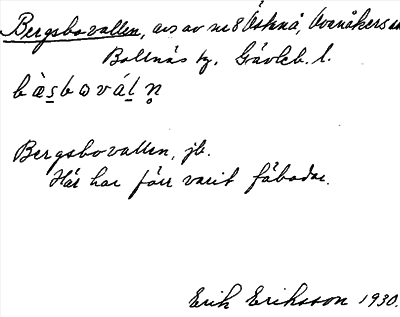 Bergsbovallen, avs av nr 8 Östnå, Ovanåkers sn
Bollnäs tg. Gävleb. l.
bæ̀sbovál̲n̥
Bergsbovallen, jb.
Här har förr varit fäbodar.
Erik Eriksson 1930.